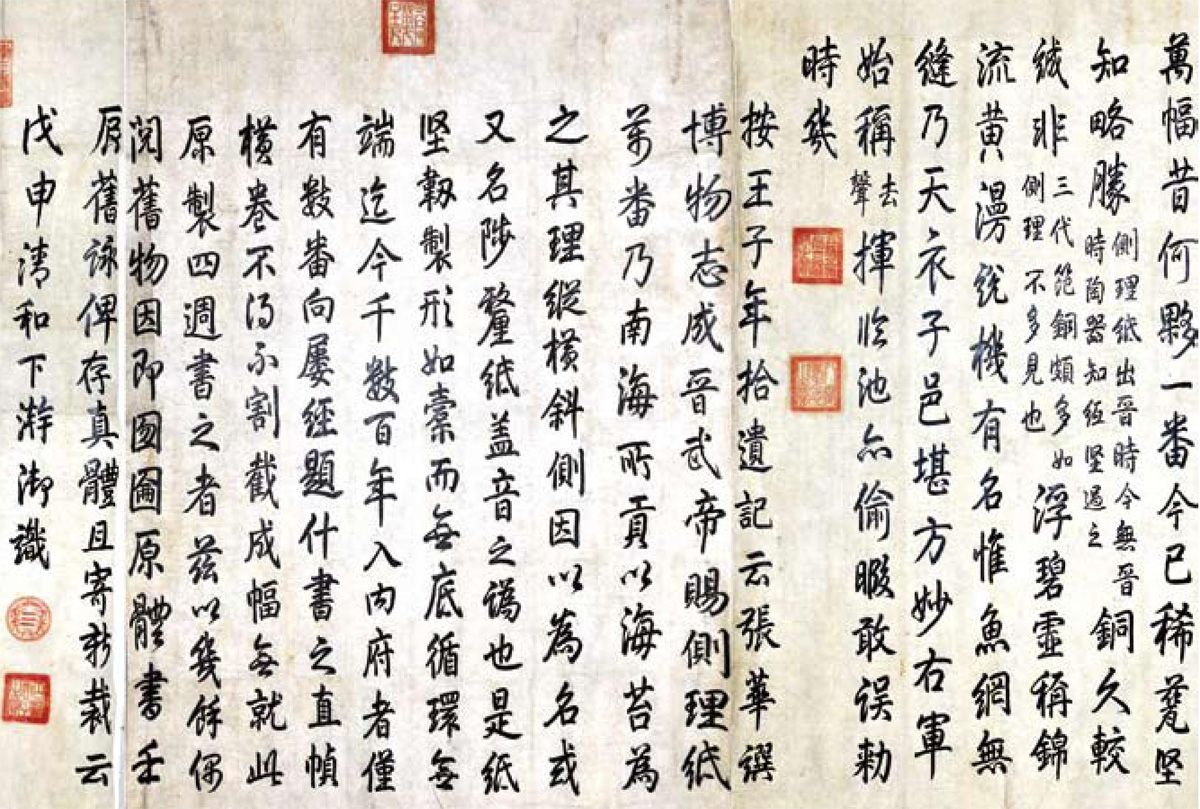 萬幅昔何夥一番今已稀甆堅
知略勝側理紙出晉時今無晉時陶器知紙堅過之銅久較
誠非三代笵銅頗多如側理不多見也浮碧霊稱錦
流黃漫説機有名惟魚網無
縫乃天衣子邑堪方妙右軍
始稱去聲揮臨池亦偷暇敢誤勅
時幾
按王子年拾遺記云張華譔
博物志成晉武帝賜側理紙
萬番乃南海所貢以海苔為
之其理縱橫斜側因以為名或
又名陟釐紙盖音之譌也是紙
堅韌製形如橐而無底循環無
端迄今千數百年入内府者僅
有數番向屢經題什書之直幀
橫卷不得不割截成幅無就此
原製四週書之者茲以幾餘偶
閱舊物因即囫圇原體書壬
辰舊詠俾存真體且寄新裁云
戊申清和下澣御識